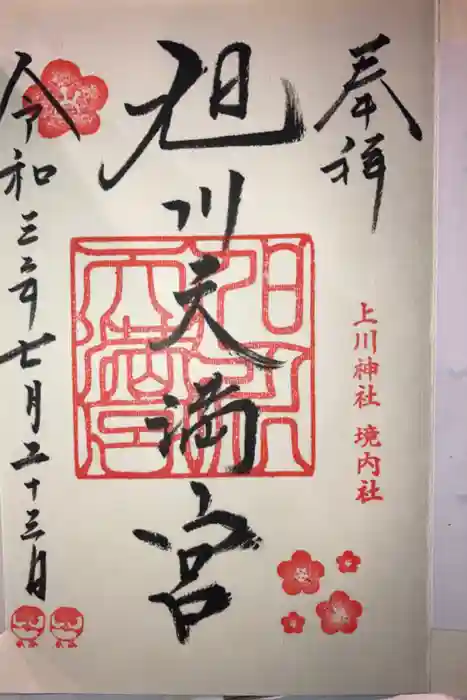 奉拝
上川神社 境内社
旭川天満宮
旭川天満宮
令和三年七月二十三日